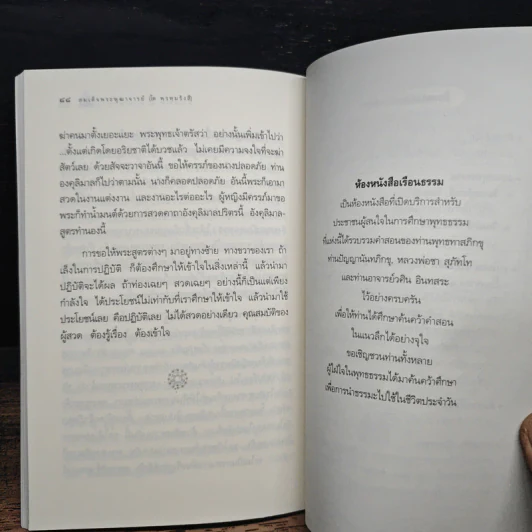 ๘๘ สมเด็จพระพุฒาจารย์
ฆ่าคนมาตั้งเยอะแยะ พระพุทธเจ้าตรัสว่า อย่างนั้นเพิ่มเข้าไปว่า
...ตั้งแต่เกิดโดยอริยชาติได้บวชแล้ว ไม่เคยมีความจงใจที่จะฆ่า
สัตว์เลย ด้วยสัจจะวาจาอันนี้ ขอให้ครรภ์ของนางปลอดภัย ท่าน
องคุลิมาลก็ไปว่าตามนั้น นางก็คลอดปลอดภัย อันนี้พระก็เอามา
สวดในงานแต่งงาน และงานอะไรต่ออะไร ผู้หญิงมีครรภ์มาขอ
พระก็ทำน้ำมนต์ด้วยการสวดคาถาอังคุลิมาลปริตรนี้ อังคุลิมาล-
สูตรทำนองนี้
การขอให้พระสูตรต่างๆ มาอยู่ทางซ้าย ทางขวาของเรา ถ้า
เล็งในการปฏิบัติ ก็ต้องศึกษาให้เข้าใจในสิ่งเหล่านี้ แล้วนำมา
ปฏิบัติจะได้ผล ถ้าท่องเฉยๆ สวดเฉยๆ อย่างนี้ก็เป็นแต่เพียง
กำลังใจ ได้ประโยชน์ไม่เท่ากับที่เราศึกษาให้เข้าใจ แล้วนำมาใช้
ประโยชน์เลย คือปฏิบัติเลย ไม่ได้สวดอย่างเดียว คุณสมบัติของ
ผู้สวด ต้องรู้เรื่อง ต้องเข้าใจ
ห้องหนังสือเรือนธรรม
เป็นห้องหนังสือที่เปิดบริการสำหรับ
ประชาชนผู้สนใจในการศึกษาพุทธธรรม
ที่แห่งนี้ได้รวบรวมคำสอนของท่านพุทธทาสภิกขุ
ท่านปัญญานันทภิกขุ, หลวงพ่อชา สุภัทโท
และท่านอาจารย์วศิน อินทสระ
ไว้อย่างครบครัน
เพื่อให้ท่านได้ศึกษาค้นคว้าคำสอน
ในแนวลึกได้อย่างจุใจ
ขอเชิญชวนท่านทั้งหลาย
ผู้ใฝ่ใจในพุทธธรรมได้มาค้นคว้าศึกษา
เพื่อการนำธรรมะไปใช้ในชีวิตประจำวัน